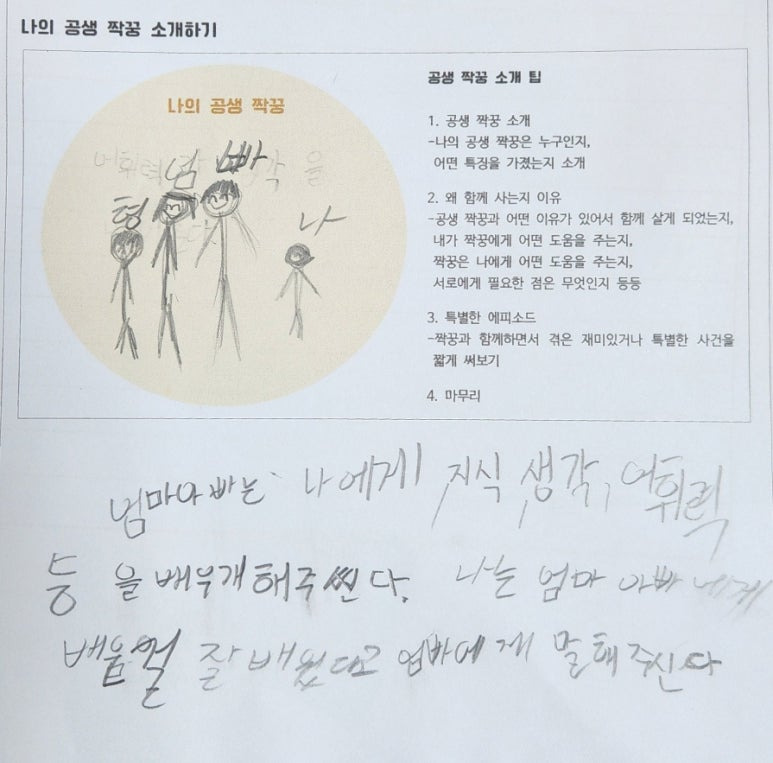 나의 공생 짝꿍 소개하기
나의 공생 짝꿍
어휘력 생각 을
엄 빠
형
나
공생 짝꿍 소개 팁
1. 공생 짝꿍 소개
-나의 공생 짝꿍은 누구인지,
어떤 특징을 가졌는지 소개
2. 왜 함께 사는지 이유
-공생 짝꿍과 어떤 이유가 있어서 함께 살게 되었는지,
내가 짝꿍에게 어떤 도움을 주는지,
짝꿍은 나에게 어떤 도움을 주는지,
서로에게 필요한 점은 무엇인지 등등
3. 특별한 에피소드
-짝꿍과 함께하면서 겪은 재미있거나 특별한 사건을
짧게 써보기
4. 마무리
엄마아빠는 나에게 지식, 생각, 어휘력
등 을 배우개 해주씬다. 나는 엄마 아빠 에게
배움걸 잘 배웠다고 엄빠에게 말해 주신다